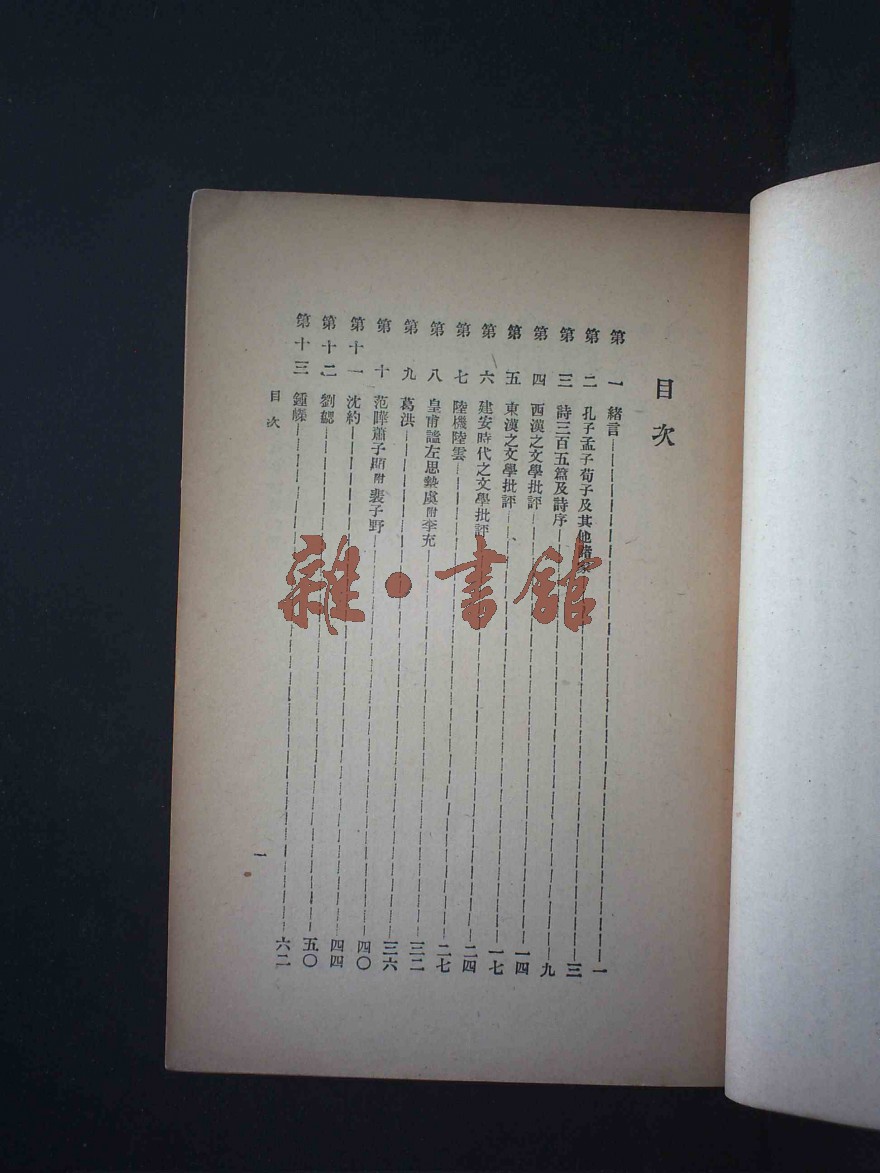 目次
第一 緒言 一
第二 孔子孟子荀子及其他諸家 三
第三 詩三百五篇及詩序 九
第四 西漢之文學批評 一四
第五 東漢之文學批評 一七
第六 建安時代之文學批評 二四
第七 陸機陸雲 二七
第八 皇甫謐左思摯虞附李充 三二
第九 葛洪 三六
第十 范曄蕭子顯附裴子野 四〇
第十一 沈約 四四
第十二 劉勰 五〇
第十三 鍾嶸 六二
目次
一
雜·書館